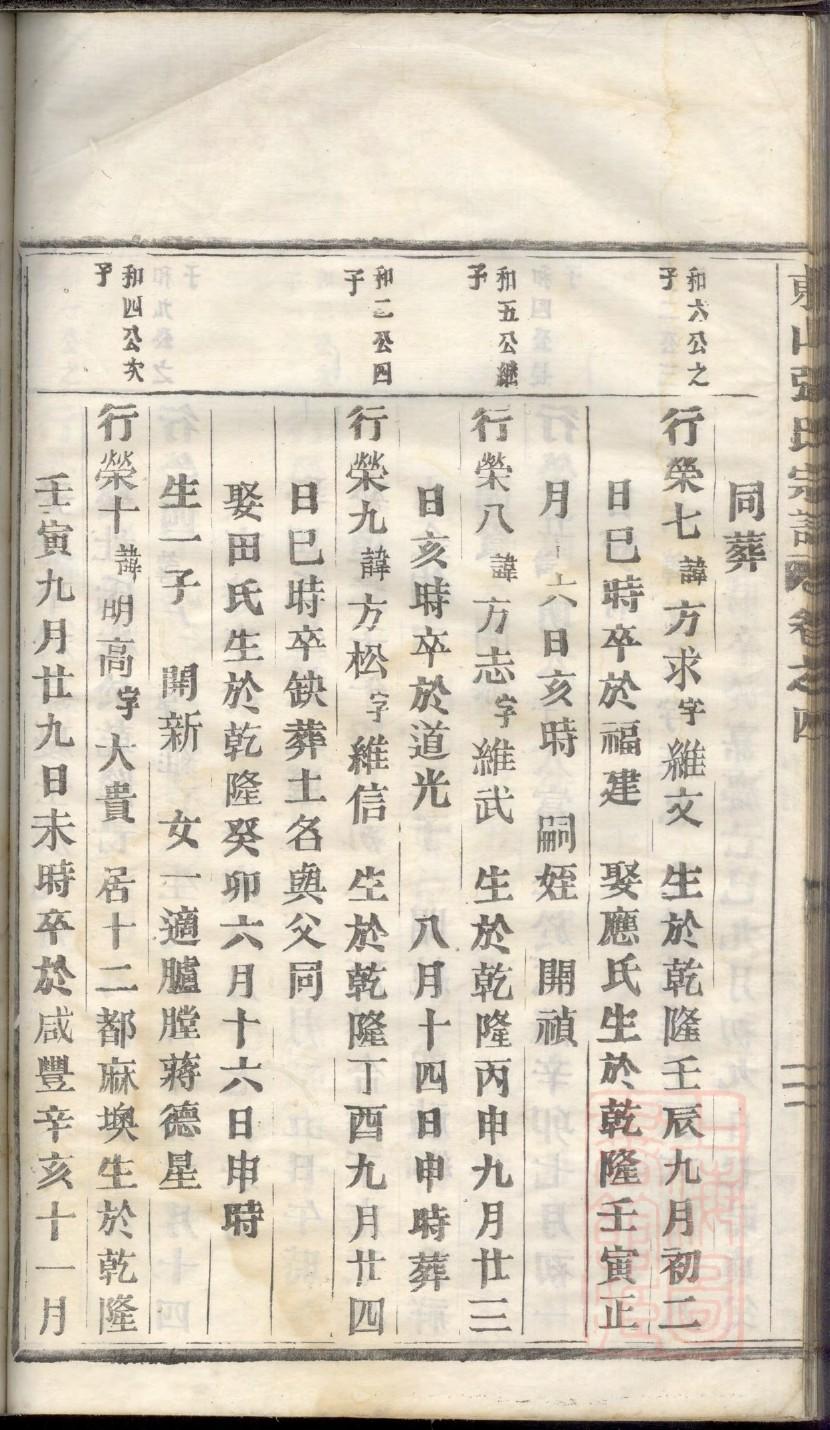 東山張氏宗譜卷之四
同葬
和六公之
子
行榮七諱方求字維文 生於乾隆壬辰九月初二
日巳時卒於福建 娶應氏生於乾隆壬寅正
月十六日亥時 嗣姪 開禎
和五公繼
子
行榮八諱方志字維武 生於乾隆丙申九月廿三
日亥時卒於道光 八月十四日申時葬
和二公四
子
行榮九諱方松字維信 生於乾隆丁酉九月廿四
日巳時卒缺葬土名與父同
娶田氏生於乾隆癸卯六月十六日申時
生一子 開新 女一適臚膛蔣德星
和四公次
子
行榮十諱明高字大貴 居十二都麻㘭生於乾隆
壬寅九月廿九日未時卒於咸豐辛亥十一月